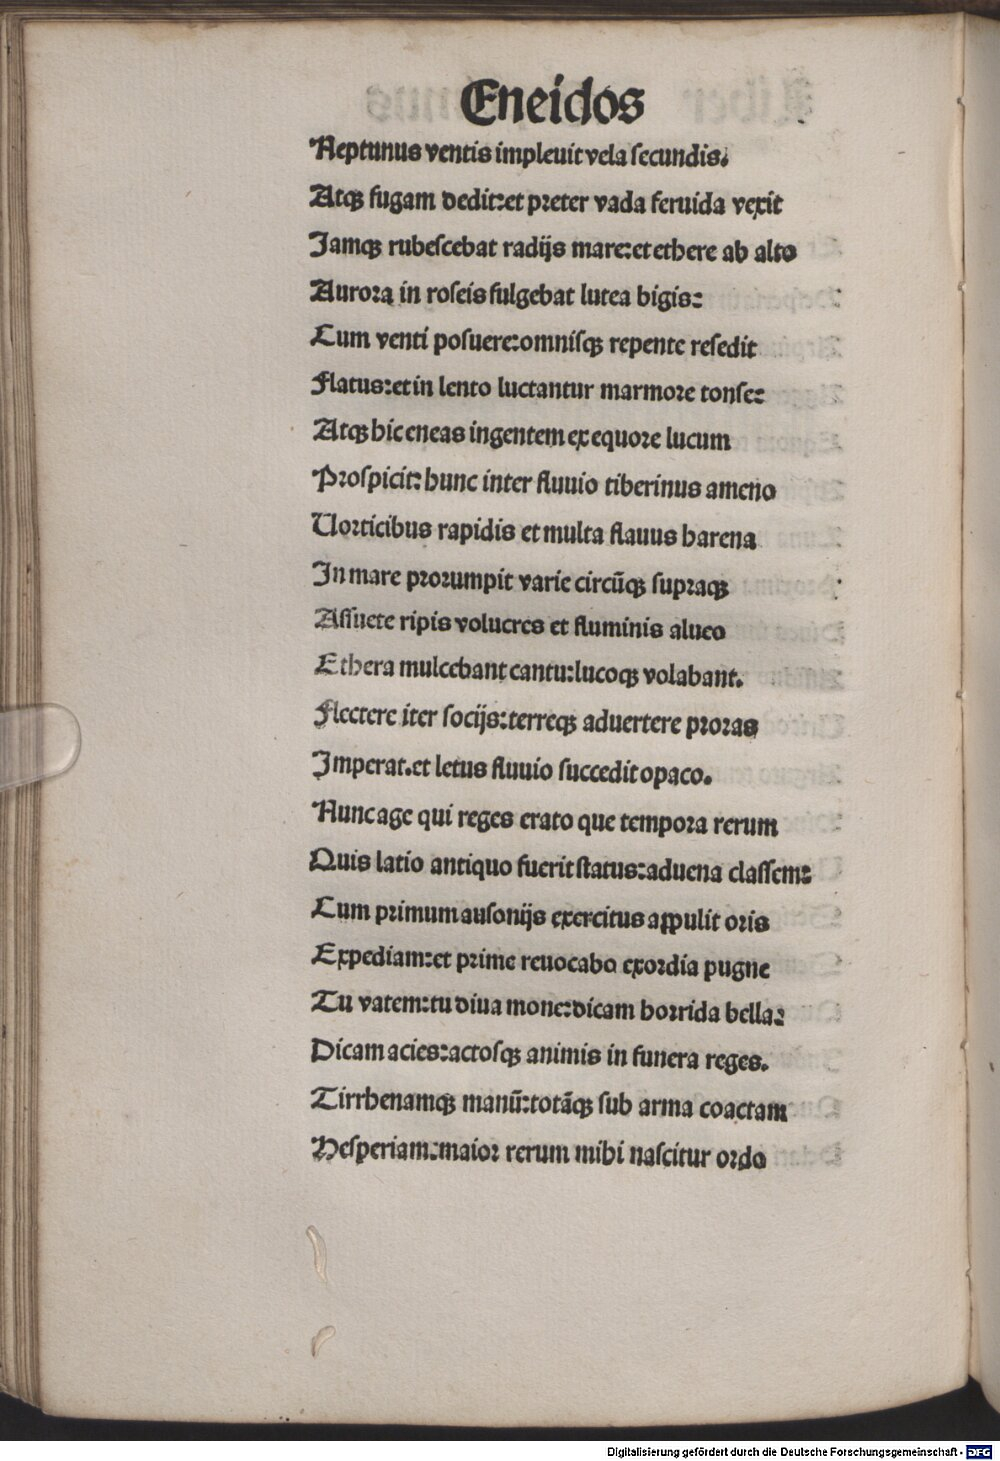 Eneidos
Neptunus ventis impleuit vela ſecundis.
Atqꝫ fugam dedit:et preter vada feruida vexit
Jamqꝫ rubeſcebat radijs mare:et ethere ab alto
Aurora in roſeis fulgebat lutea bigis:
Cum venti poſuere:omniſqꝫ repente reſedit
Flatus:et in lento luctantur marmore tonſe:
Atqꝫ hic eneas ingentem ex equore lucum
Proſpicit: hunc inter fluuio tiberinus ameno
Uorticibus rapidis et multa flauus harena
In mare prorumpit varie circũqꝫ ſupraqꝫ
Aſſuete ripis volucres et fluminis alueo
Ethera mulcebant cantu:lucoqꝫ volabant.
Flectere iter ſocijs:terreqꝫ aduertere proras
Imperat.et letus fluuio ſuccedit opaco.
Nunc age qui reges erato que tempora rerum
Quis latio antiquo fuerit ſtatus:aduena claſſem:
Cum primum auſonijs exercitus appulit oris
Expediam:et prime reuocabo exordia pugne
Tu vatem:tu diua mone:dicam horrida bella:
Dicam acies:actoſqꝫ animis in funera reges.
Tirrhenamqꝫ manũ:totãqꝫ ſub arma coactam
Heſperiam:maior rerum mihi naſcitur ordo
Digitalisierung gefördert durch die Deutsche Forschungsgemeinschaft - DFG